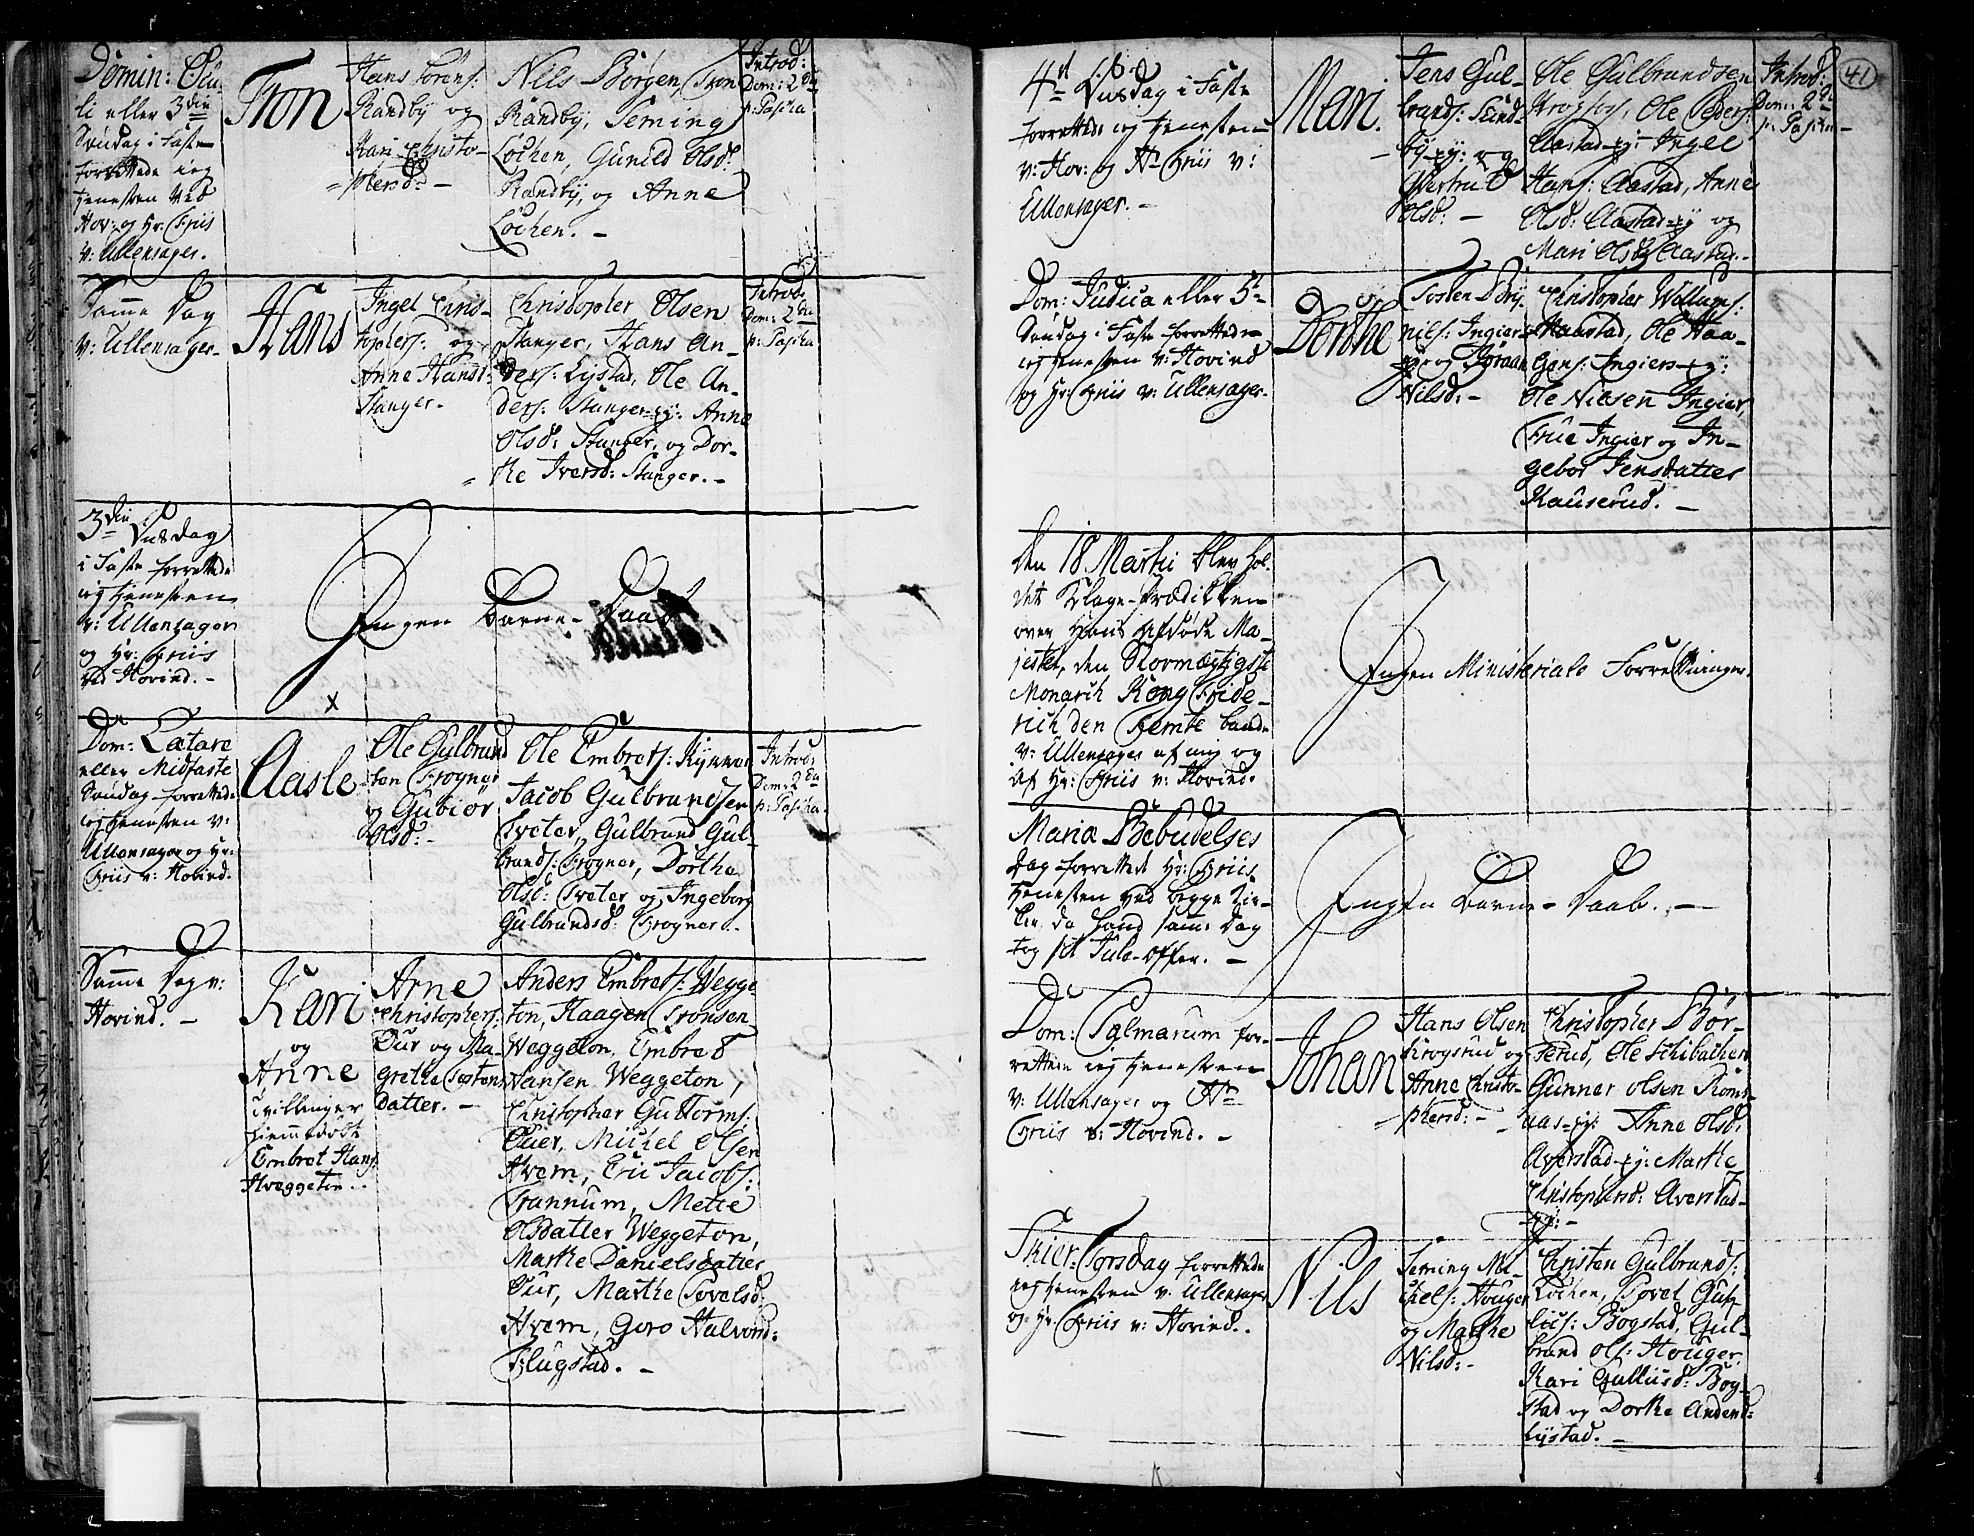 Domin: Ocu-
li eller 3die
Søndag i Faste
forrettede ieg
tienesten ved
Hov: og Hr. Friis
v: Ullensager.
Tron
Hans Sørens:
Randby og
Kari Christo-
phersd: -
Nils Børgen, Tron
Randby, Teming
Lochen, Gunild Olsd:
Randby, og Anne
Lochen. -
Introd:
Dom: 2da
p: Pascha
Samme Dag
v: Ullensager-
Hans
Ingel Chris-
tophers: og
Anne Hansd:
Stanger.
Christopher Olsen
Stanger, Hans An-
ders: Lystad, Ole An-
ders: Stanger-ey: Anne
Olsd: Stanger, og Dor-
the Iversd: Stanger. -
Introd:
Dom: 2da
p: Pascha
3die Onsdag
i Faste forrettede
ieg tienesten
v: Ullensager
og Hr: Friis
ved Hovind. -
Ingen Barne-Daab
x
Dom: Lætare
eller Midfaste
Søndag forrettede
ieg tienesten v:
Ullensager og Hr:
Friis v: Hovind.
Aasle
Ole Gulbrand
sen Frogner
og Gubiør
Olsd: -
Ole Embrets: Kynner
Jacob Gulbrandsen
Tveter, Gulbrand Gul-
brands: Frogner, Dorthe
Olsd: Tveter og Ingeborg
Gulbrandsd: Frogner.
Introd:
Dom: 2da
p: Pascha
Samme Dag v:
Hovind. -
Kari
og
Anne
tvillinger
hiemmedøbt
Embret Hans:
Hveggeton.
Arne
Christophers:
Dur og Ma-
grethe Tostens
datter. -
Anders Embrets: Wegge-
ton, Haagen Tronsen
Weggeton, Embret
Hansen Weggeton,
Christopher Guttorms:
Duer, Michel Olsen
Hvem, Eric Jacobs:
Trannum, Mette
Olsdatter Weggeton,
Marthe Danielsdatter
Dur, Marthe Tovelsd:
Hvem, Goro Halvord:
Flugstad. -
41
4de Onsdag i Faste
forrettede ieg tienesten
v: Hov: og Hr Friis v:
Ullensager. -
Mari.
Jens Gul-
brands: Sund-
by-ey: og
Giertrud
Olsd: -
Ole Gulbrandsen
Krogsrud, Ole Peders:
Aastad-ey: Ingel
Hans: Aastad, Anne
Olsd: Aastad-ey og
Mari Olsd: Aastad. -
Introd:
Dom: 2da
p: Pascha -
Dom: Judica eller 5te
Søndag i Faste forrettede
ieg tienesten v: Hovind
og Hr: Friis v: Ullensager.
Dorthe
Tosten Bry-
nils: Ingier-
eye og Joraan
Nilsd: -
Christopher Willums:
Naastad, Ole Haa-
gens: Ingiers-ey:
Ole Nilsen Ingier,
Frue Ingier og In-
gebor Jensdatter
Kauserud. -
den 18 Martii blev hol-
det Klage-Prædikken
over Hans Afdøde Ma-
jestet, den Stormægtigste
Monarch Kong Fride-
rich den Femte baade
v: Ullensager af mig og
af Hr: Friis v: Hovind.
Ingen Ministeriale Forretninger.
Mariæ Bebudelses
dag forrettede Hr: Friis
tienesten ved begge Kir-
ker, da hand samme Dag
tog sit Jule-offer. -
Ingen Barne-Daab. -
Dom: Palmarum for-
rettede ieg tienesten
v: Ullensager og Hr
Friis v: Hovind. -
Johan
Hans Olsen
Krogsrud og
Anne Christo-
phersd: -
Christopher Bør-
serud, Ole Schibachen
Gunner Olsen Røm-
uas-ey: Anne Olsd:
Averstad-ey: Marthe
Christophersd: Averstad-
ey: -
Skier-Torsdag forrettede
ieg tienesten v: Ullensager
og Hr: Friis v: Hovind.
Nils
Teming Mi-
chels: Houger
og Marthe
Nilsd: -
Christen Gulbrands:
Lochen, Tovel Gul-
lius: Bogstad, Gul-
brand Ols: Houger,
Kari Gulliusd: Bog-
stad og Dorthe Andersd:
Lystad. -